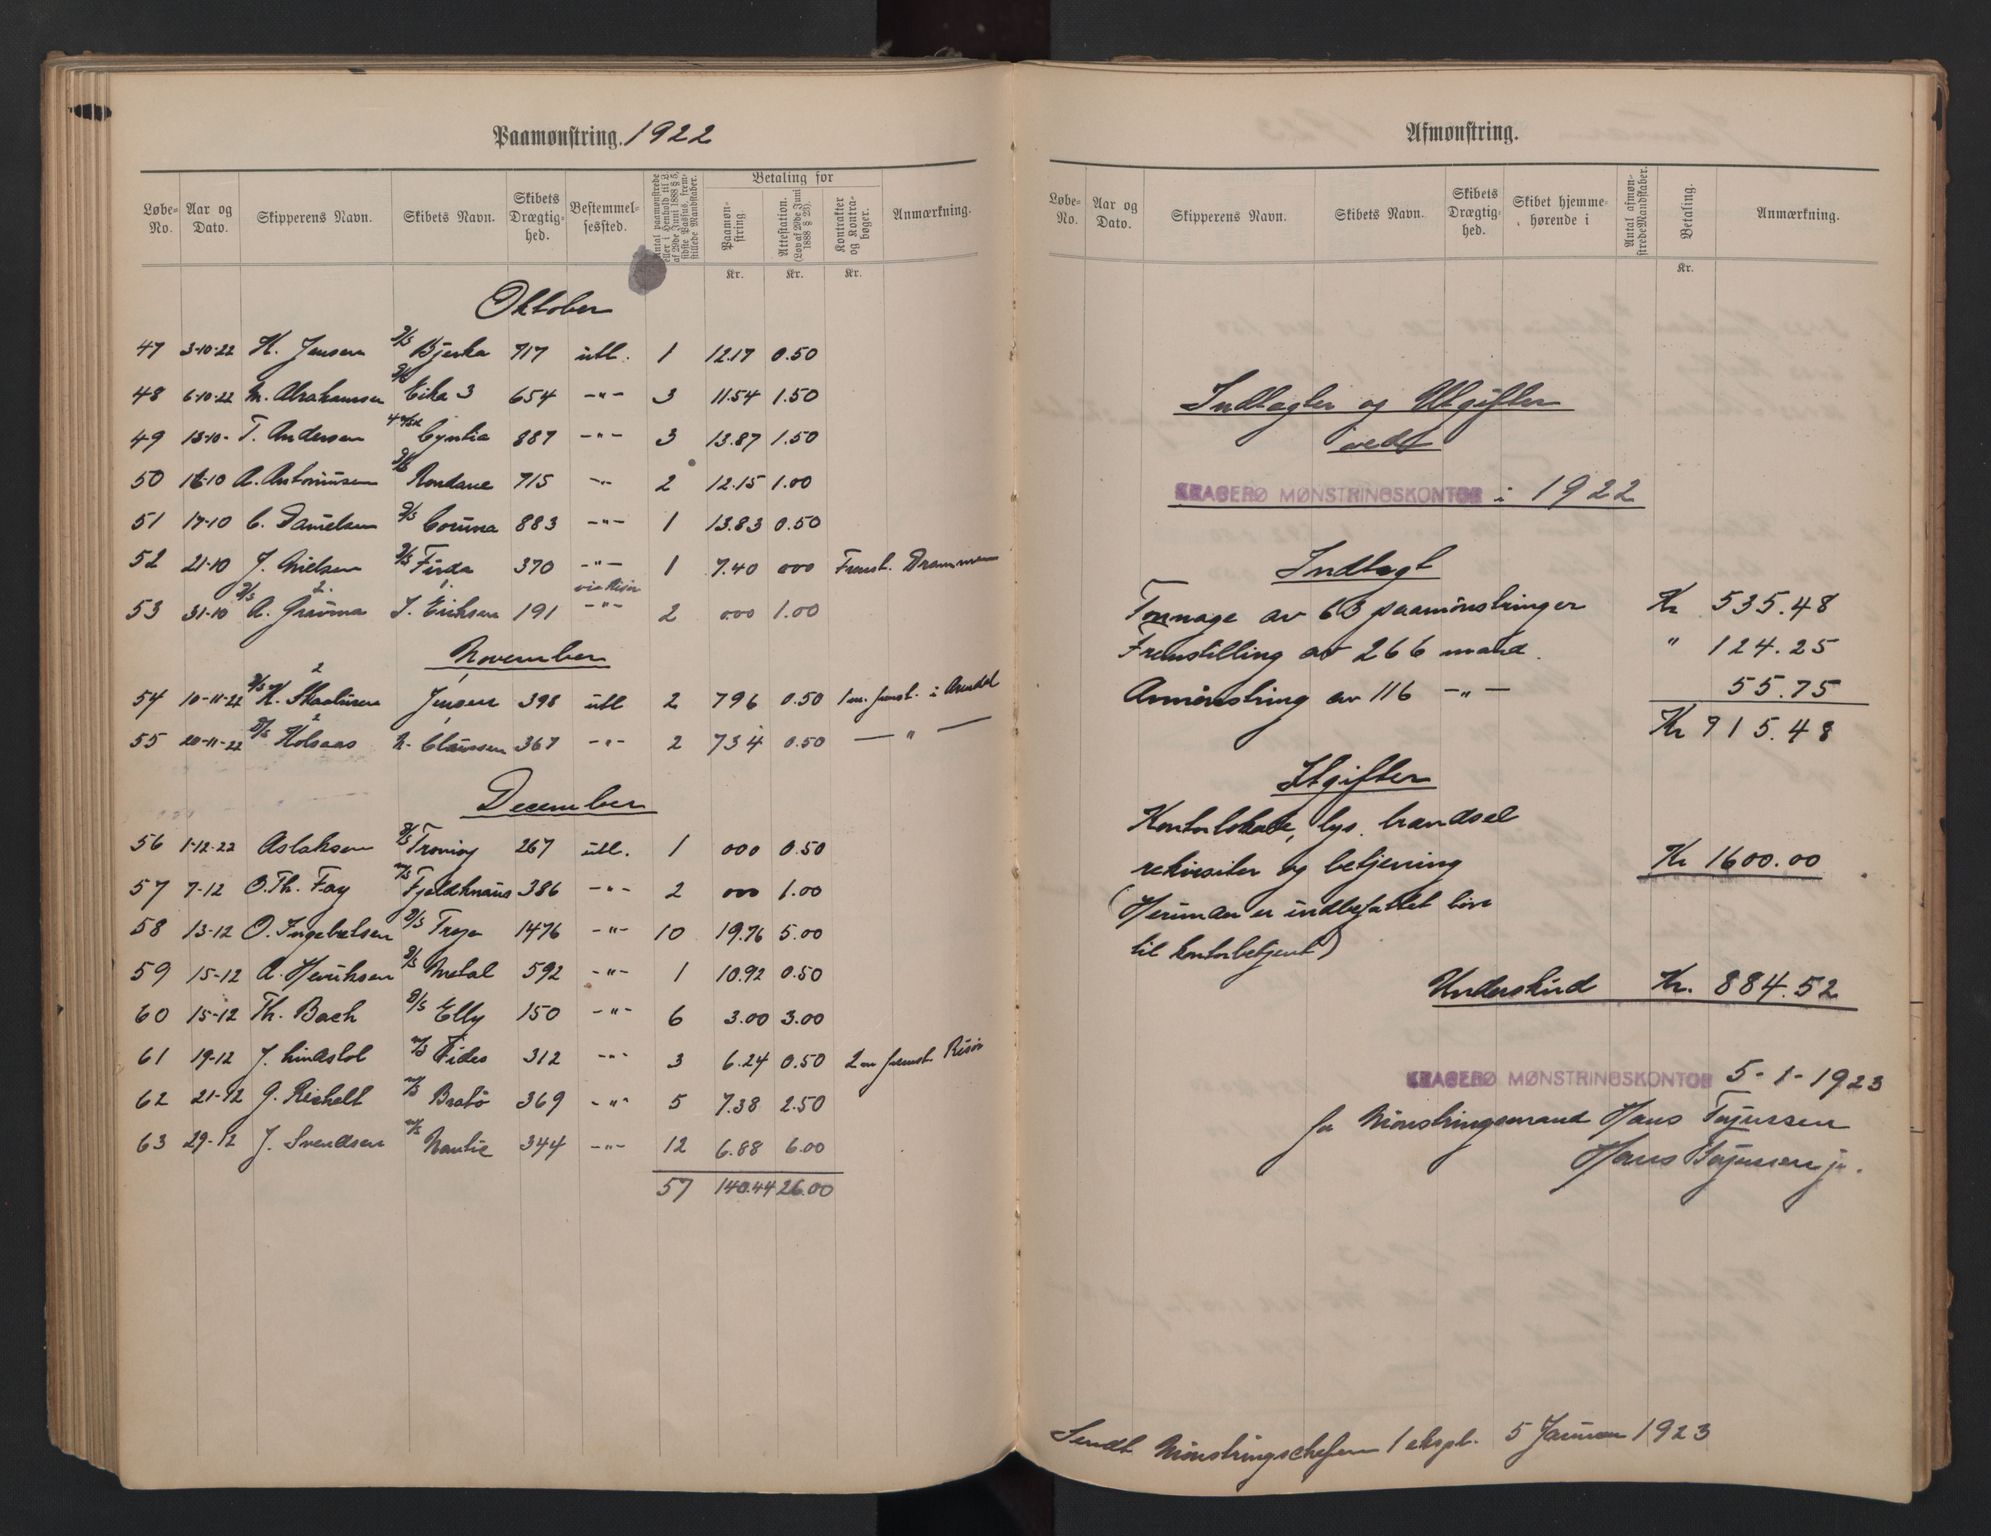 Paamønstring. 1922
Løbe-No. Aar og Dato. Skipperens Navn. Skibets Navn. Skibets Drægtighed. Bestemmelsessted. Betaling for Paamønstring. Attestation. (Lov af 29de Juni 1888 § 25). Kontrakter og Kontrabøger. Anmærkning.
Kr. Kr. Kr.
Oktober
47 3-10-22 K. Jensen D/S Bjerka 717 utl. 1 12.17 0.50
48 6-10-22 M. Abrahamsen D/S Eika 3 654 -"- 3 11.54 1.50
49 13-10- T. Andersen Cyntia 887 -"- 3 13.87 1.50
50 16-10 A. Antoniusen D/S Rondane 715 -"- 2 12.15 1.00
51 17-10 C. Danielsen D/S Coruna 883 -"- 1 13.83 0.50
52 21-10 J. Nielsen D/S Firda 370 -"- 1 7.40 000 Fremst. Drammen
53 31-10 A. D/S J. Eriksen 191 via Risør -"- 2 0.00 1.00
November
54 10-11-22 D/S K. Jensen 398 utl 2 796 0.50 1 m. fremst. i Arendal
55 20-11-22 D/S Holsaas N. Claussen 367 -"- 2 734 0.50 — " —
December
56 1-12-22 Aslaksen D/S Tromøy 267 utl. 1 000 0.50
57 7-12 O. Th. Fay M/S Fjeldknaus 386 -"- 2 000 1.00
58 13-12 O. Ingebretsen D/S Troja 1476 -"- 10 19.76 5.00
59 15-12 A. Henriksen D/S Metal 592 -"- 1 10.92 0.50
60 15-12 Th. Bach D/S Elly 150 -"- 6 3.00 3.00
61 19-12 J. Lindstol M/S Fides 312 -"- 3 6.24 0.50 2 m fremst. Risør
62 21-12 G. Richelt M/S Bratø 369 -"- 5 7.38 2.50
63 29-12 J. Svendsen M/S Nautic 344 -"- 12 6.88 6.00
57 140.44 26.00
Afmønstring.
Løbe-No. Aar og Dato. Skipperens Navn. Skibets Navn. Skibets Drægtighed. Skibet hjemmehørende i Antal afmønstrede Mandskaber. Betaling. Anmærkning.
Kr.
Indtægter og Utgifter
ved
KRAGERØ MØNSTRINGSKONTOR i 1922
Indtægt
Tonnage av 63 paamönstringer Kr 535.48
Fremstilling av 266 mand. " 124.25
Avmönstring av 116 -"- 55.75
Kr 915.48
Utgifter
Kontorlokale, lys. brændsel
rekvisiter og betjening Kr 1600.00
(Herunder er indbefattet lön
til kontorbetjent)
Underskud Kr. 884.52
KRAGERØ MØNSTRINGSKONTOR 5-1-1923
for Mönstringsmand Hans Tojussen
Hans Tojussen jr.
Sendt Mönstringschefen 1 ekspl. 5 Januar 1923